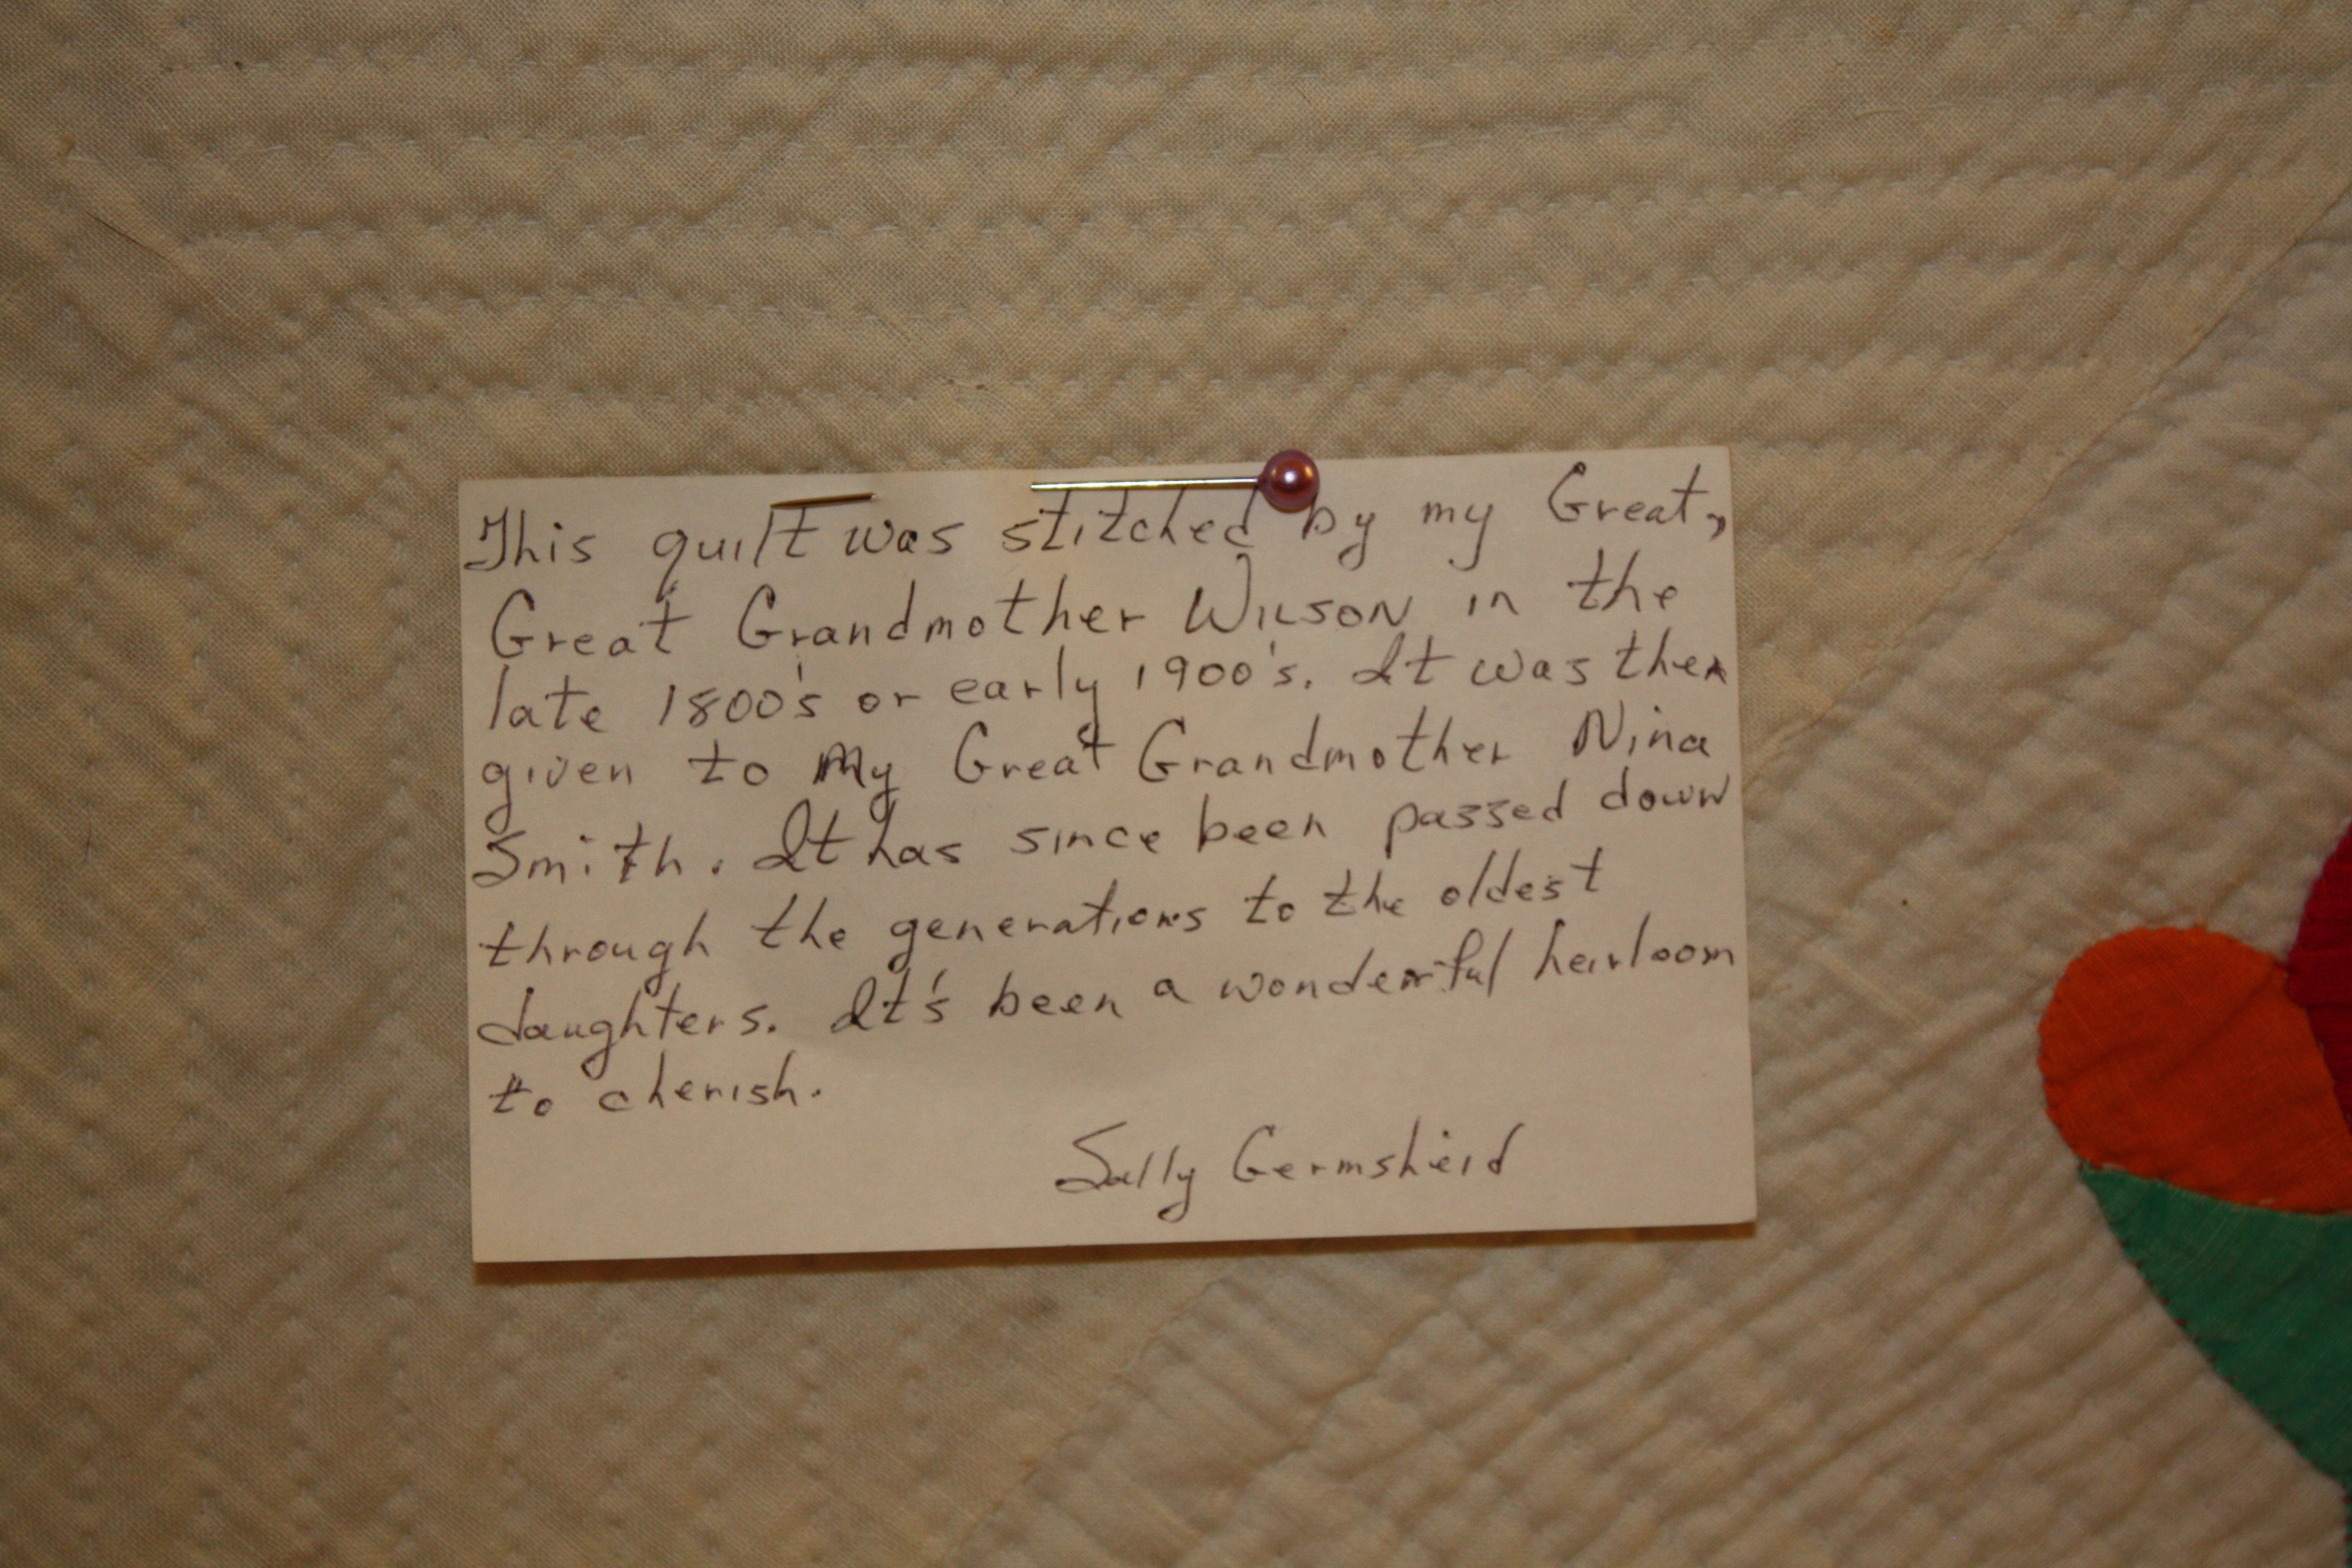 This quilt was stitched by my Great,
Great Grandmother Wilson in the
late 1800's or early 1900's. It was then
given to my Great Grandmother Nina
Smith. It has since been passed down
through the generations to the oldest
daughters. It's been a wonderful heirloom
to cherish.
Sally Germsheid